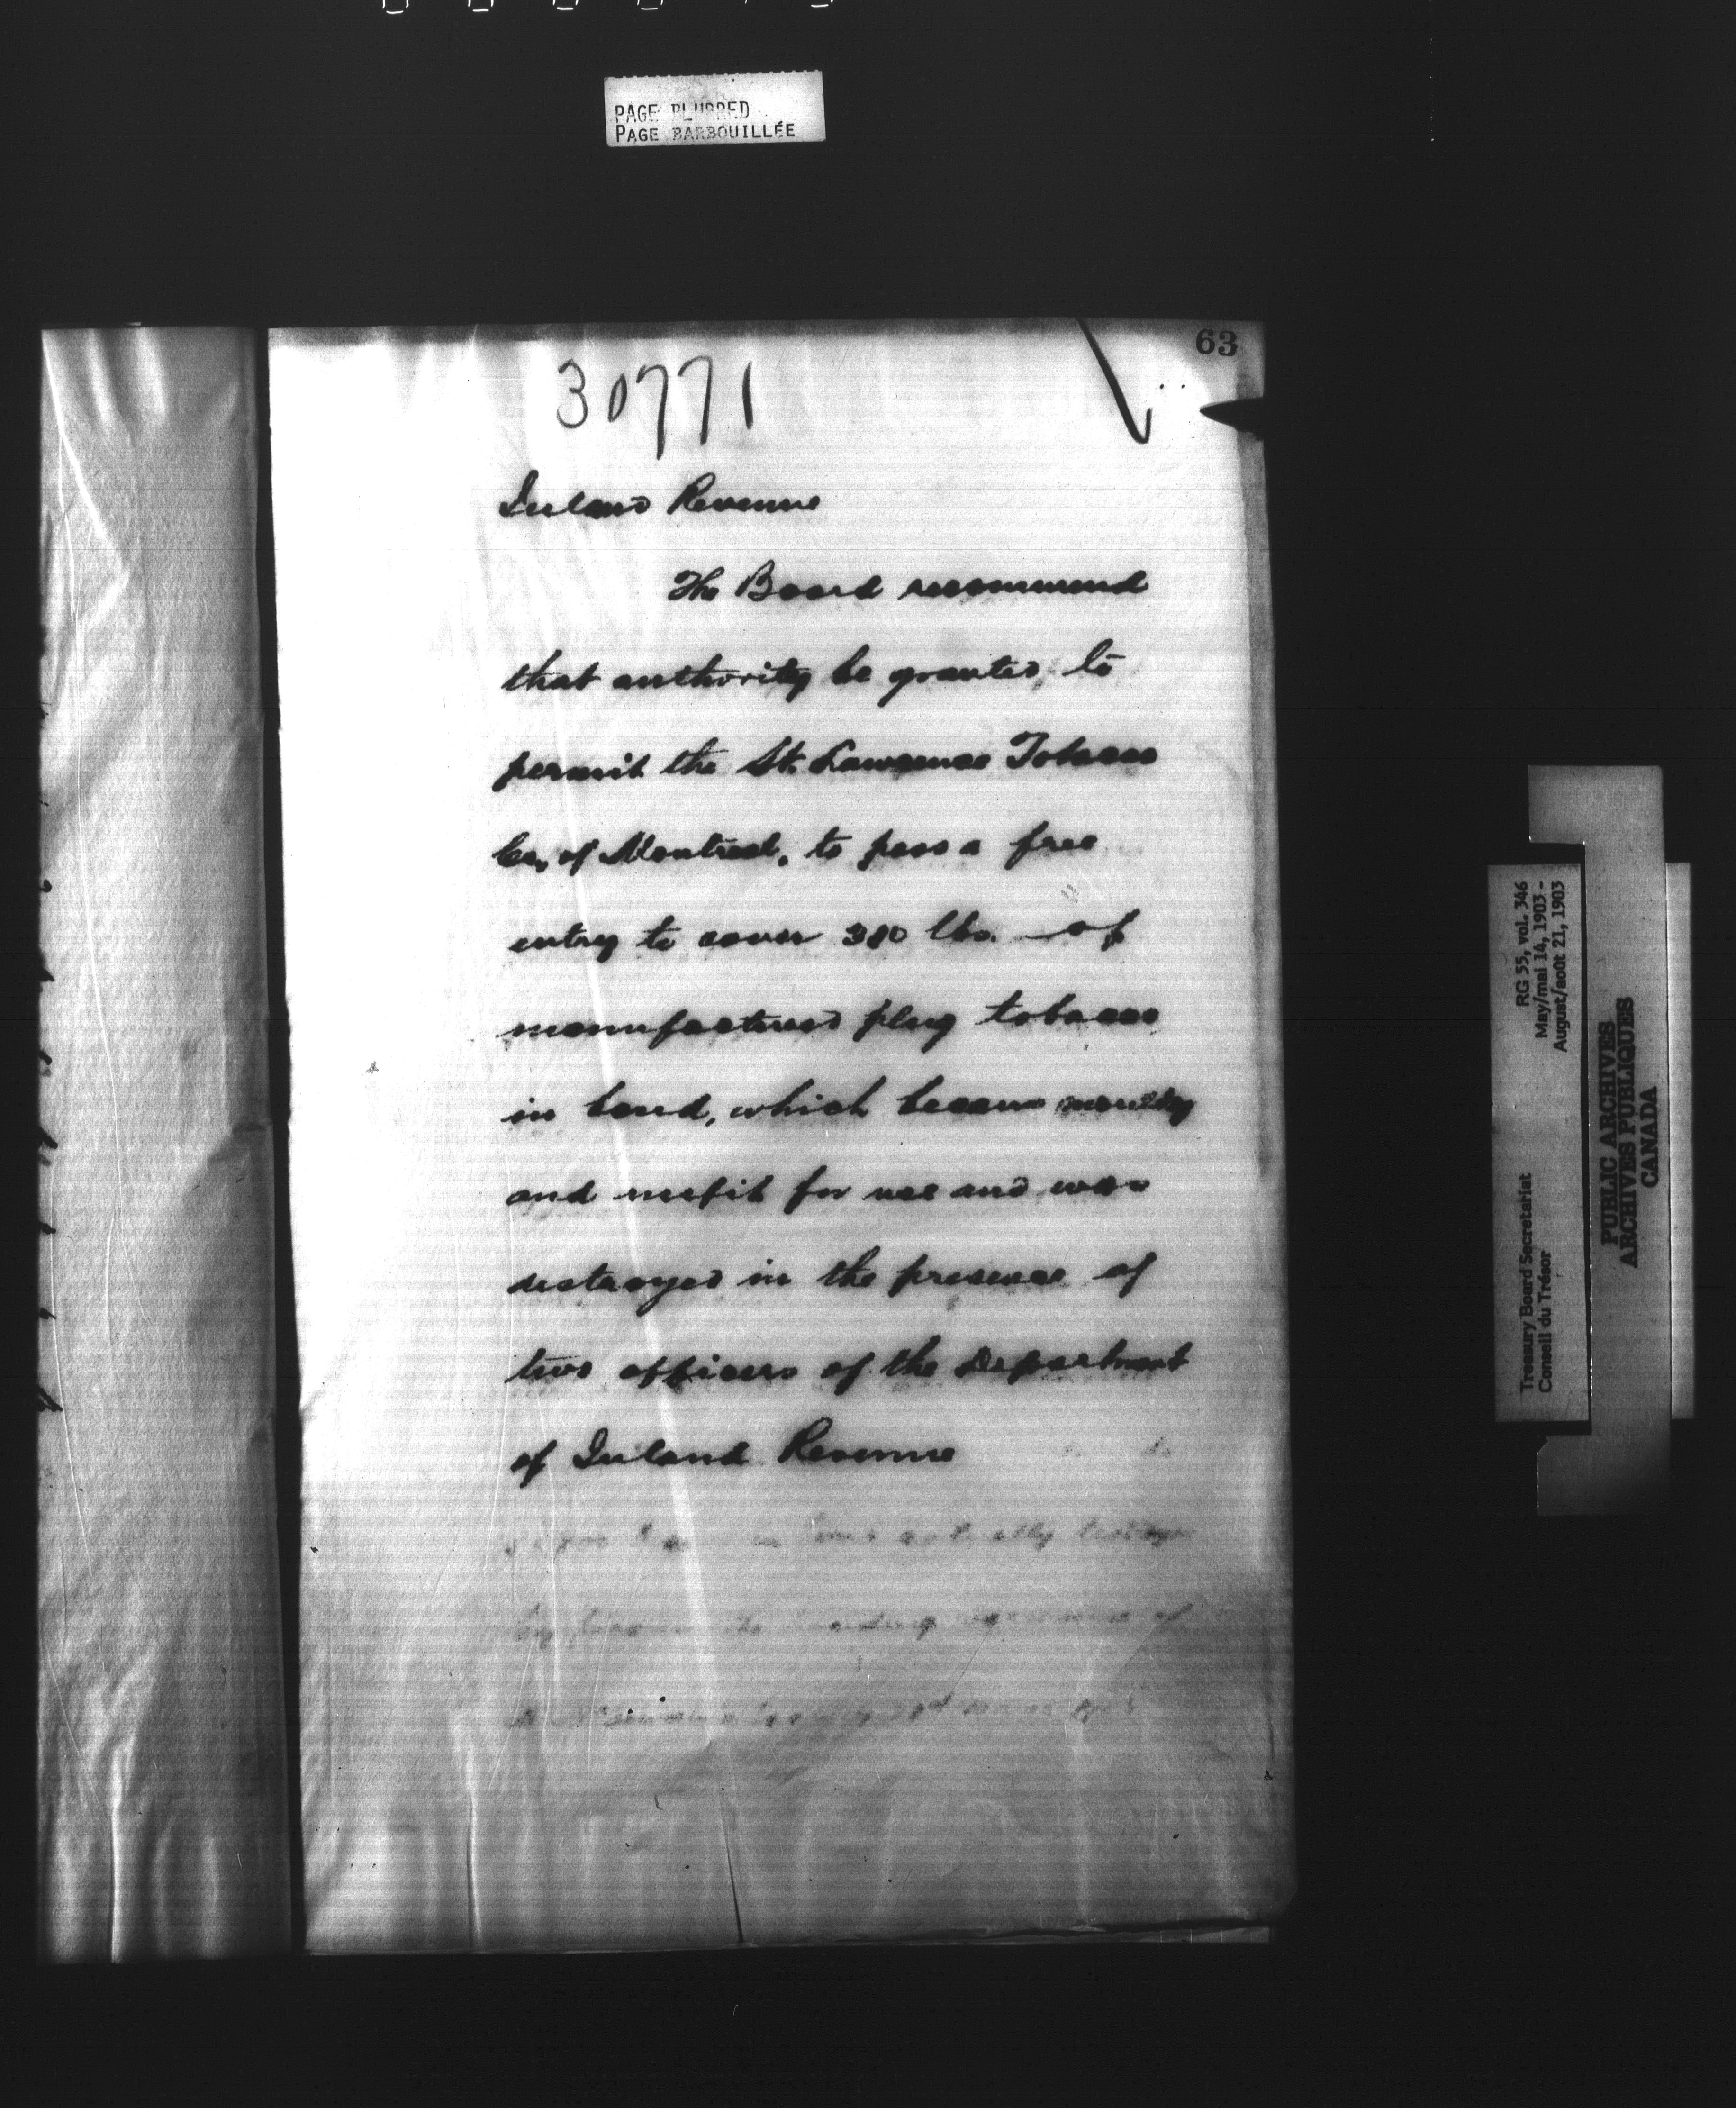 PAGE BLURRED
PAGE BARBOUILLÉE
63
30771
Inland Revenue
The Board recommend
that authority be granted, to
permit the St. Lawrence Tobacco
Co, of Montreal, to pass a free
entry to cover 380 lbs. of
manufactured plug tobacco
in bond, which became mouldy
and unfit for use and was
destroyed in the presence of
two officers of the Department
of Inland Revenue
by
of
RG 55, vol. 346
May/mai 14, 1903 -
August/août 21, 1903
Treasury Board Secretariat
Conseil du Trésor
PUBLIC ARCHIVES
ARCHIVES PUBLIQUES
CANADA